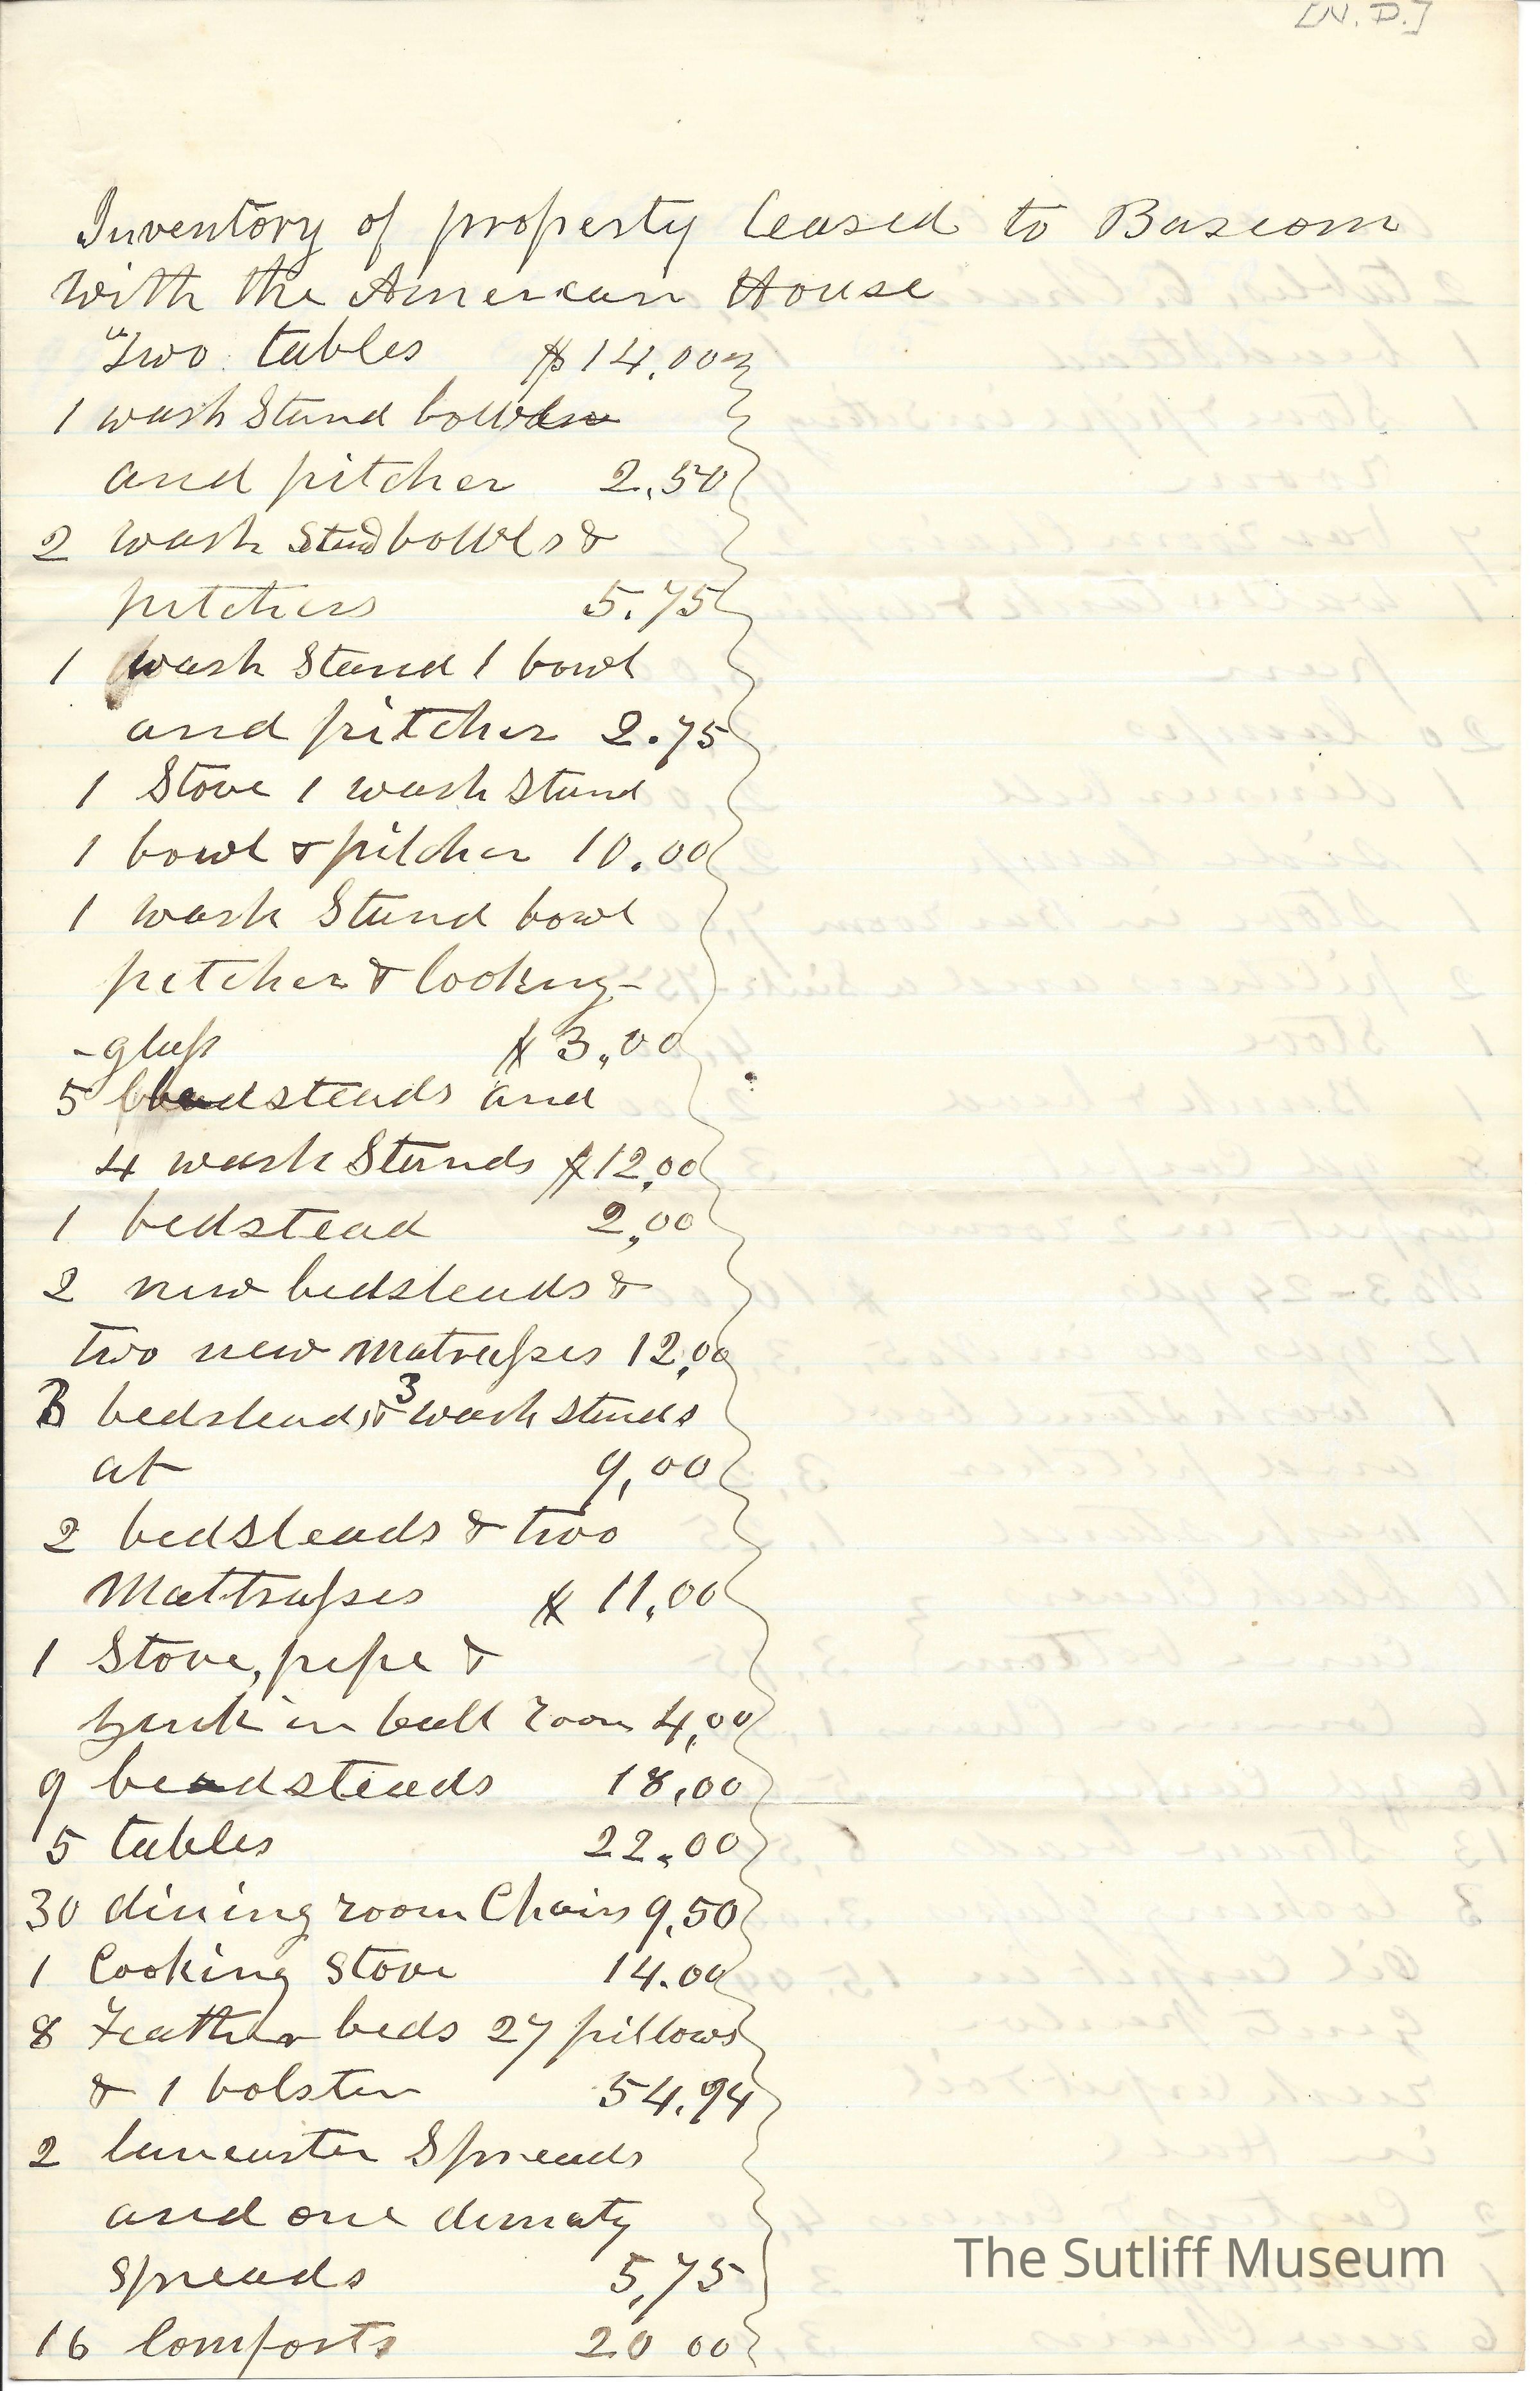 [N.D.]
Inventory of property leased to Bascom
with the American House
"Two tables $14.00
1 wash Stand bowl
and pitcher 2.50
2 wash Stand bowls &
pitchers 5.75
1 wash Stand 1 bowl
and pitcher 2.75
1 Stove 1 wash Stand
1 bowl & pitcher 10.00
1 wash Stand bowl
pitcher & looking-
-glass $3,00
5 bedsteads and
4 wash Stands $12,00
1 bedstead 2,00
2 new bedsteads &
two new Matrasses 12,00
3 bedsteads & 3 wash stands
at 9,00
2 bedsteads & two
Mattrasses $11,00
1 Stove, pipe &
zink in ball room 4,00
9 bedsteads 18,00
5 tables 22.00
30 dining room Chairs 9,50
1 Cooking Stove 14.00
8 Feather beds 27 pillows
& 1 bolster 54,94
2 lancaster Spreads
and one dimaty
spreads 5,75
16 Comforts 20 00
The Sutliff Museum